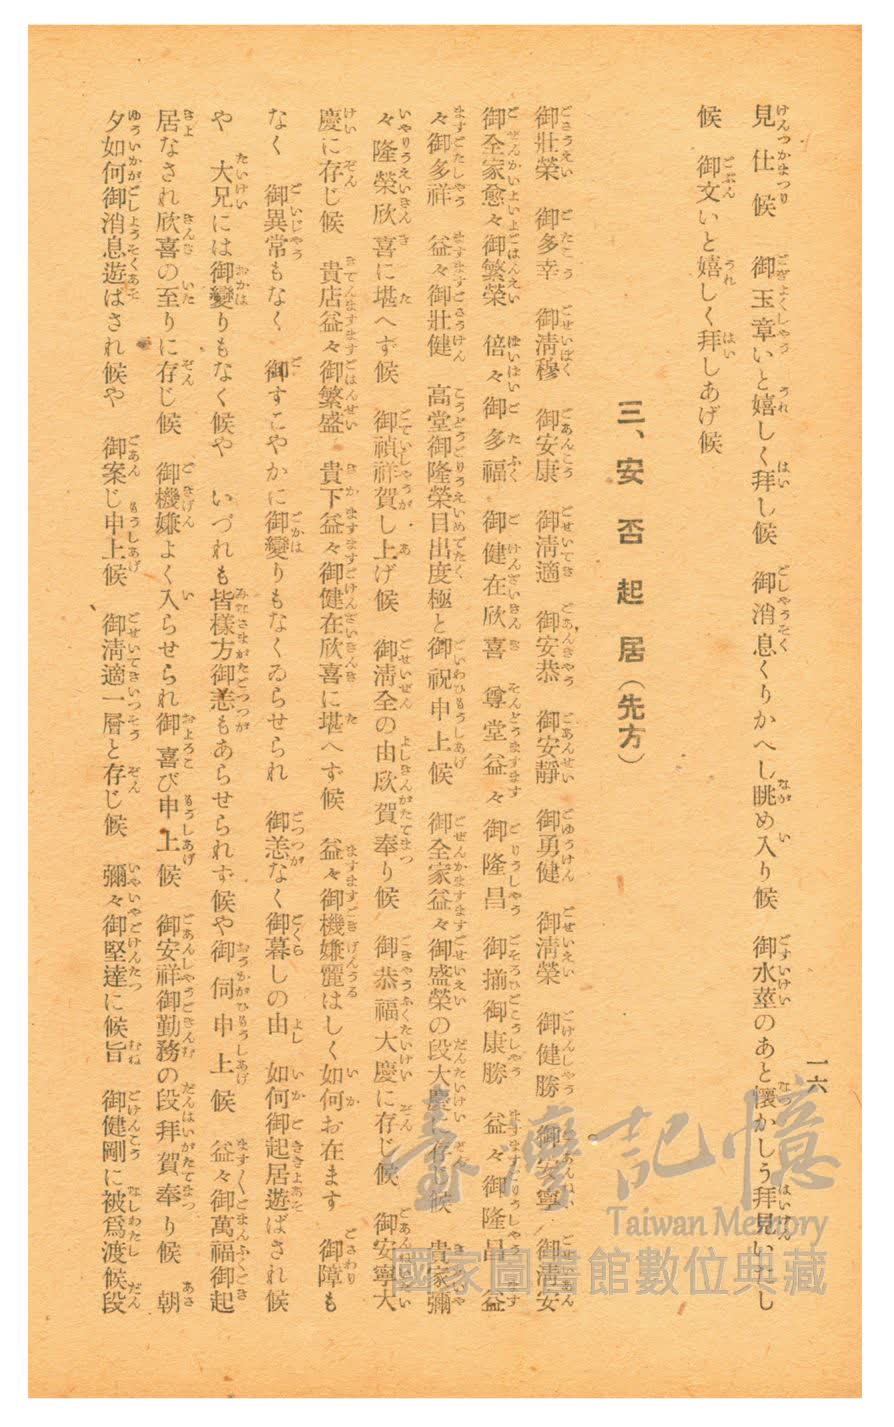 一六
見仕候　御玉章いと嬉しく拜し候　御消息くりかへし眺め入り候　御水莖のあと懷かしう拜見いたし
候　御文いと嬉しく拜しあげ候
三、安否起居（先方）
御壯榮　御多幸　御淸穆　御安康　御淸適　御安恭　御安靜　御勇健　御淸榮　御健勝　御安寧　御淸安
御全家愈々御繁榮　倍々御多福　御健在欣喜　尊堂益々御隆昌　御揃御康勝　益々御隆昌　益
々御多祥　益々御壯健　高堂御隆榮目出度極と御祝申上候　御全家益々御盛榮の段大慶に存じ候　貴家彌
々隆榮欣喜に堪へず候　御禎祥賀し上げ候　御淸全の由欣賀奉り候　御恭福大慶に存じ候　御安寧大
慶に存じ候　貴店益々御繁盛　貴下益々御健在欣喜に堪へず候　益々御機嫌麗はしく如何お在ます　御障も
なく　御異常もなく　御すこやかに御變りもなくゐらせられ　御恙なく御暮しの由　如何御起居遊ばされ候
や　大兄には御變りもなく候や　いづれも皆樣方御恙もあらせられず候や御伺申上候　益々御萬福御起
居なされ欣喜の至りに存じ候　御機嫌よく入らせられ御喜び申上候　御安祥御勤務の段拜賀奉り候　朝
夕如何御消息遊ばされ候や　御案じ申上候　御淸適一層と存じ候　彌々御堅達に候旨　御健剛に被爲渡候段
臺灣記憶
Taiwan Memory
國家圖書館數位典藏